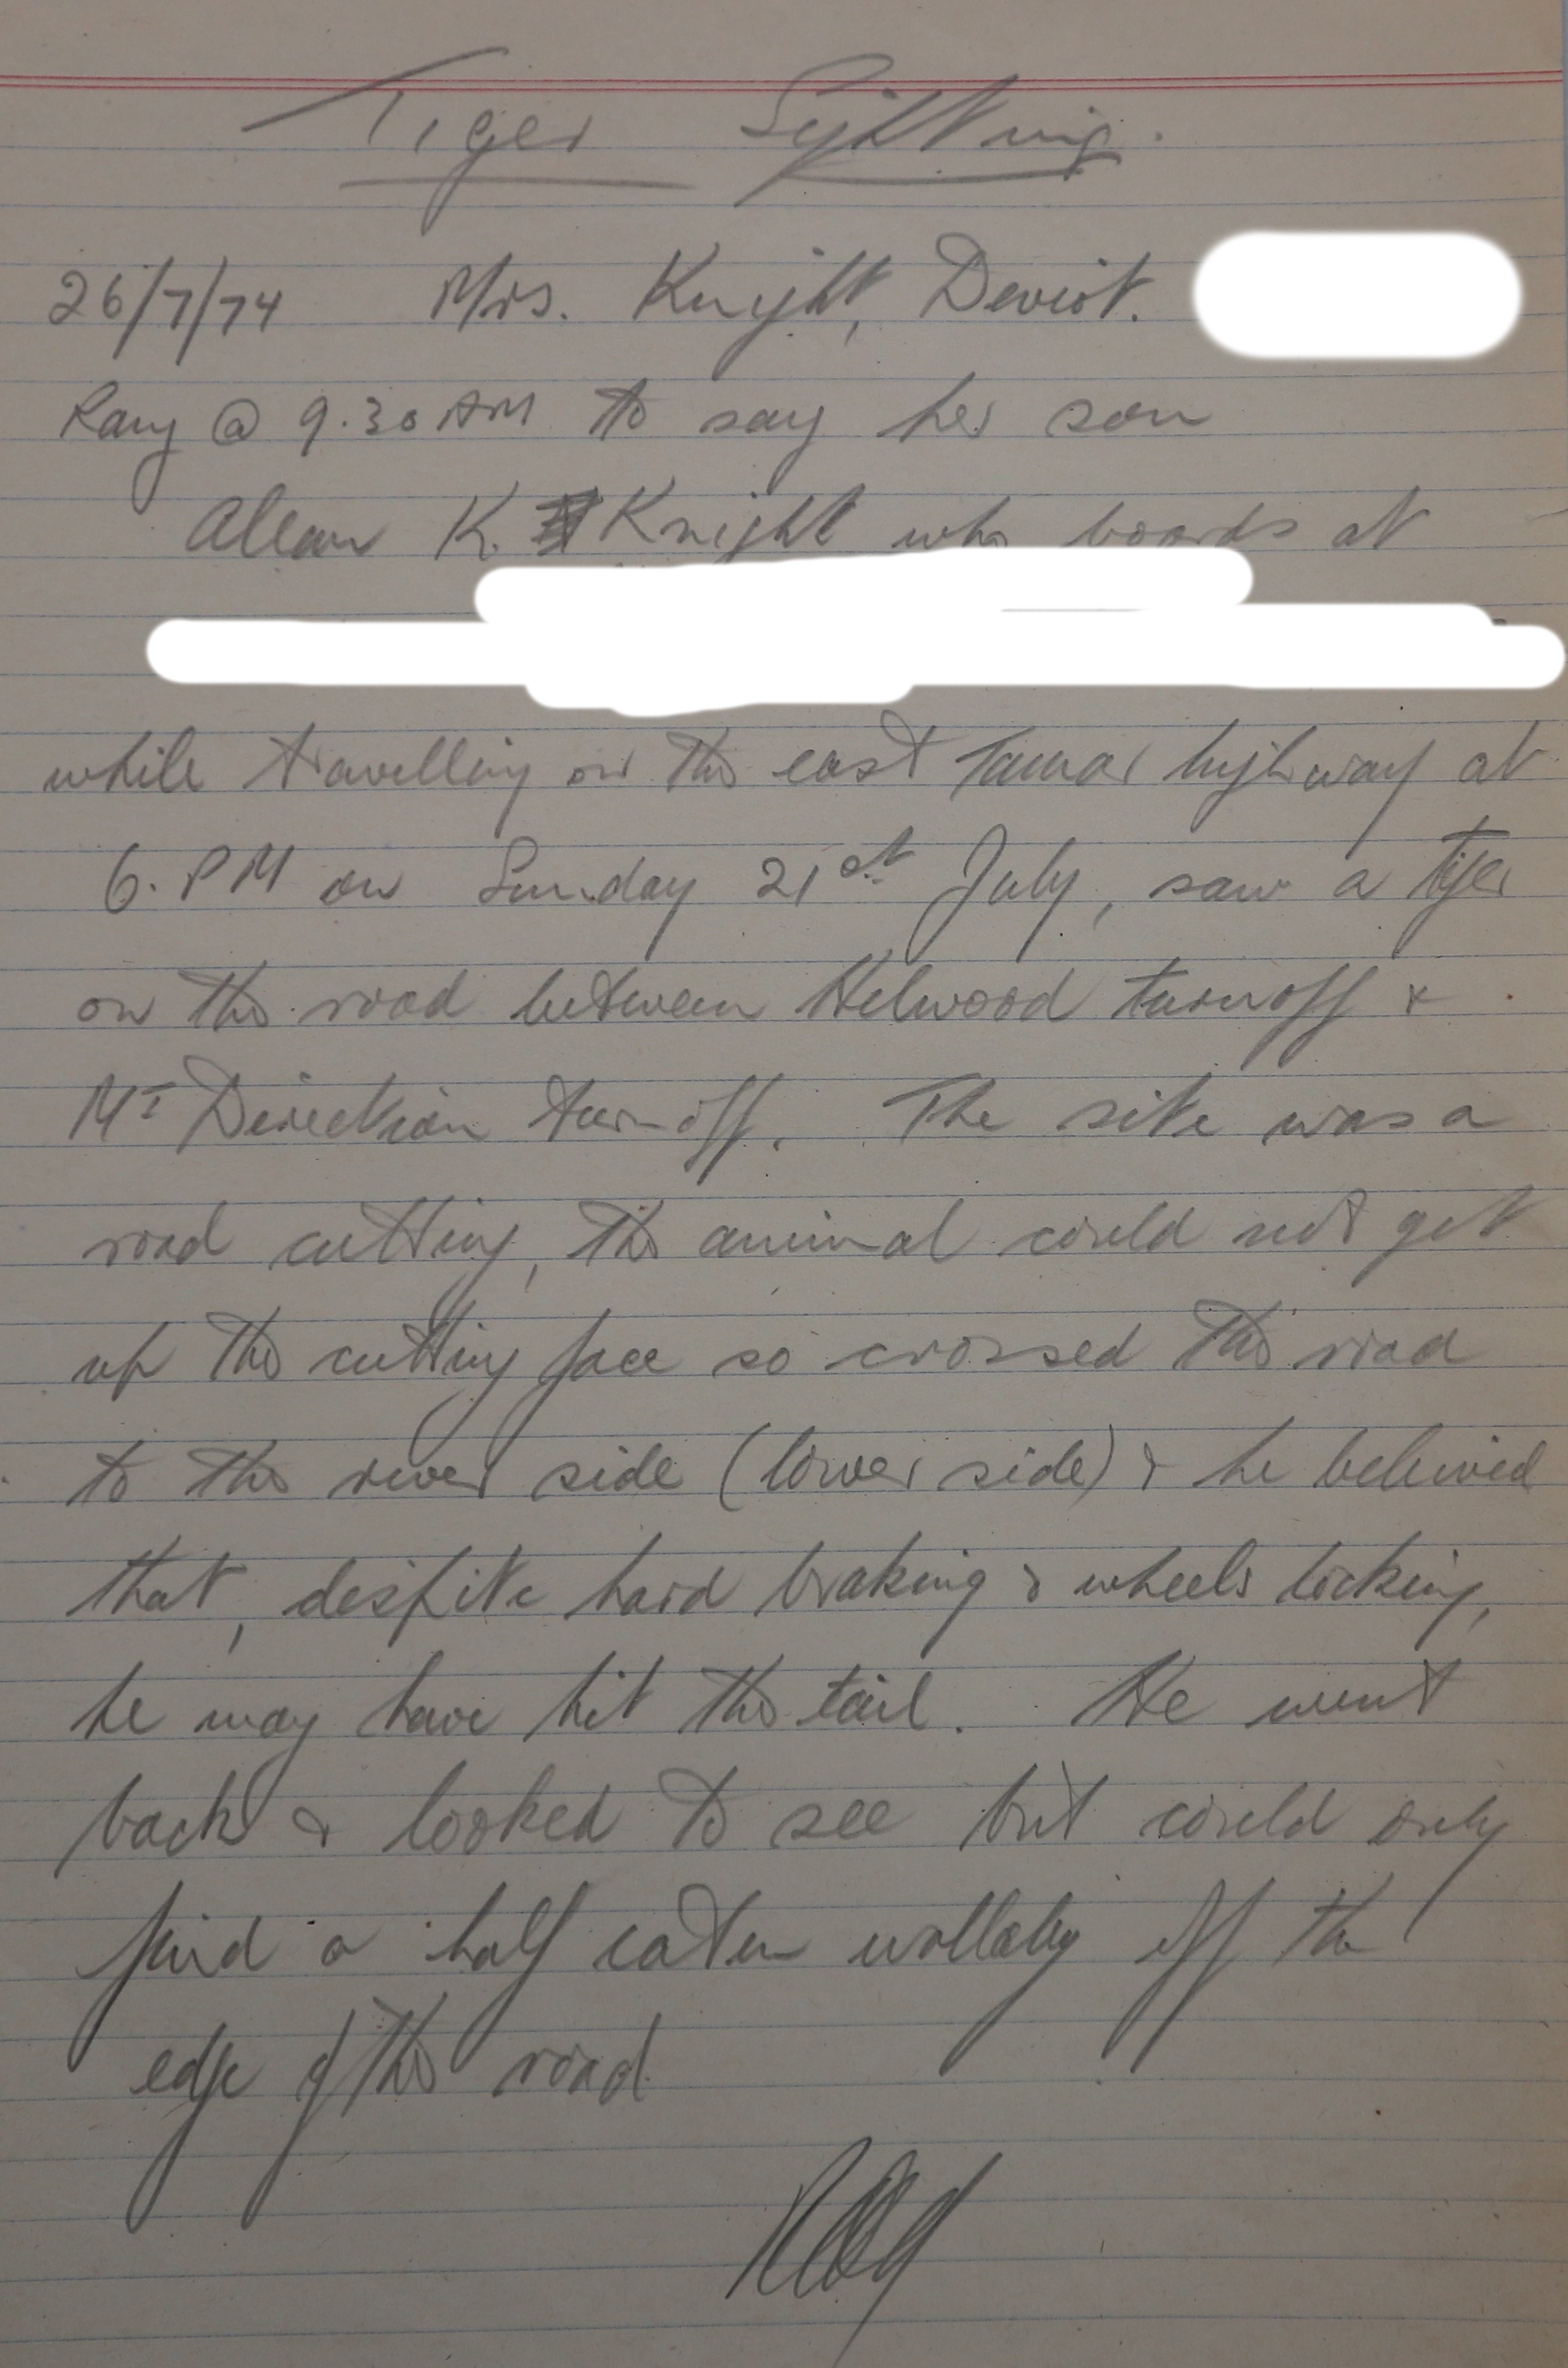 Tiger Sighting.
26/7/74 Mrs. Knight, Deviot.
Rang @ 9.30 AM to say her son
Allan K. Knight who boards at
while travelling on the east Tamar highway at
6. PM on Sunday 21st July, saw a tiger
on the road between Hilwood turnoff &
Mt Direction turnoff. The site was a
road cutting, the animal could not get
up the cutting face so crossed the road
to the river side (lower side) & he beleived
that, despite hard braking & wheels locking,
he may have hit the tail. He went
back & looked to see but could only
find a half eaten wallaby off the
edge of the road